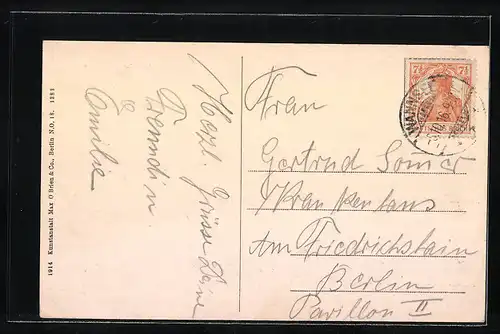 1914 Kunstanstalt Max O'Brien & Co., Berlin N.O. 18. 1281
Herzl. Grüsse Deine
Freundin
Emilie
7½ 7½
WANNSEE
Frau
Gertrud Somer
Krankenhaus
Am Friedrichshain
Berlin
Pavillon II